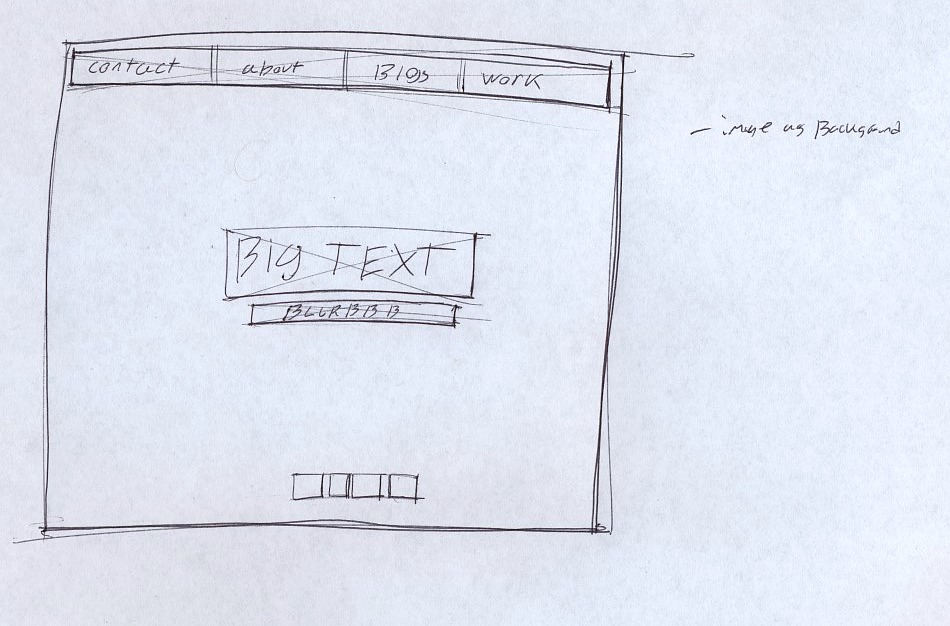 contact about Blogs work
- image as Background
Big TEXT
BLURBBB